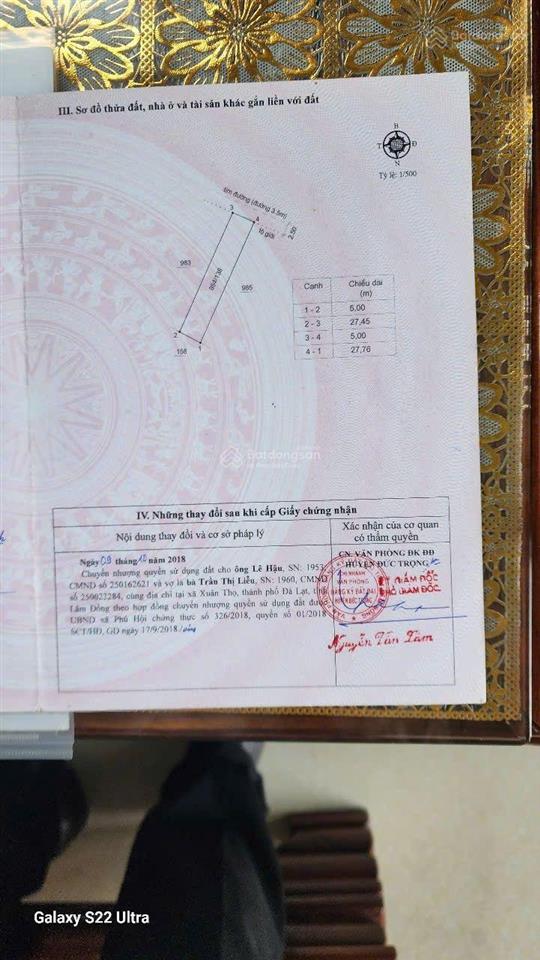 III. Sơ đồ thửa đất, nhà ở và tài sản khác gắn liền với đất
B
T Đ
N
Tỷ lệ: 1/500
tim đường (đường 3.5m)
3
4
lộ giới
2.50
983
984/138
985
2
1
168
Cạnh Chiều dài (m)
1 - 2 5,00
2 - 3 27,45
3 - 4 5,00
4 - 1 27,76
Batdongsan
IV. Những thay đổi sau khi cấp Giấy chứng nhận
Nội dung thay đổi và cơ sở pháp lý
Xác nhận của cơ quan
có thẩm quyền
Ngày 09 tháng 10 năm 2018
Chuyển nhượng quyền sử dụng đất cho ông Lê Hậu, SN: 1953,
CMND số 250162621 và vợ là bà Trần Thị Liễu, SN: 1960, CMND
số 250022284, cùng địa chỉ tại xã Xuân Thọ, thành phố Đà Lạt, tỉnh
Lâm Đồng theo hợp đồng chuyển nhượng quyền sử dụng đất được
UBND xã Phú Hội chứng thực số 326/2018, quyển số 01/2018
SCT/HĐ, GD ngày 17/9/2018
CN. VĂN PHÒNG ĐK ĐĐ
HUYỆN ĐỨC TRỌNG
CHI NHÁNH
VĂN PHÒNG
ĐĂNG KÝ ĐẤT ĐAI
HUYỆN ĐỨC TRỌNG
GIÁM ĐỐC
PHÓ GIÁM ĐỐC
Nguyễn Văn Tám
Galaxy S22 Ultra